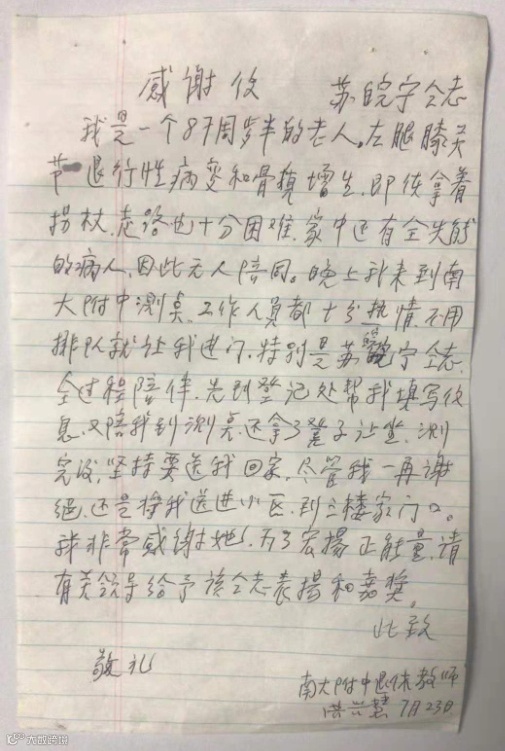 感谢信 苏皖宁仝志
我是一个87周岁半的老人。左腿膝关
节退行性病变和骨质增生,即使拿着
拐杖,走路也十分困难,家中还有全失能
的病人,因此无人陪同。晚上我来到南
大附中测点,工作人员都十分热情,不用
排队就让我进门,特别是苏皖宁仝志,
全过程陪伴,先到登记处帮我填写信
息,又陪我到测点,还拿了凳子让坐,测
完后,坚持要送我回家,尽管我一再谢
绝,还是将我送进小区,到三楼家门口。
我非常感谢她,为了宏扬正能量,请
有关领导给予该仝志表扬和嘉奖。
此致
敬礼
南大附中退休教师
7月23日